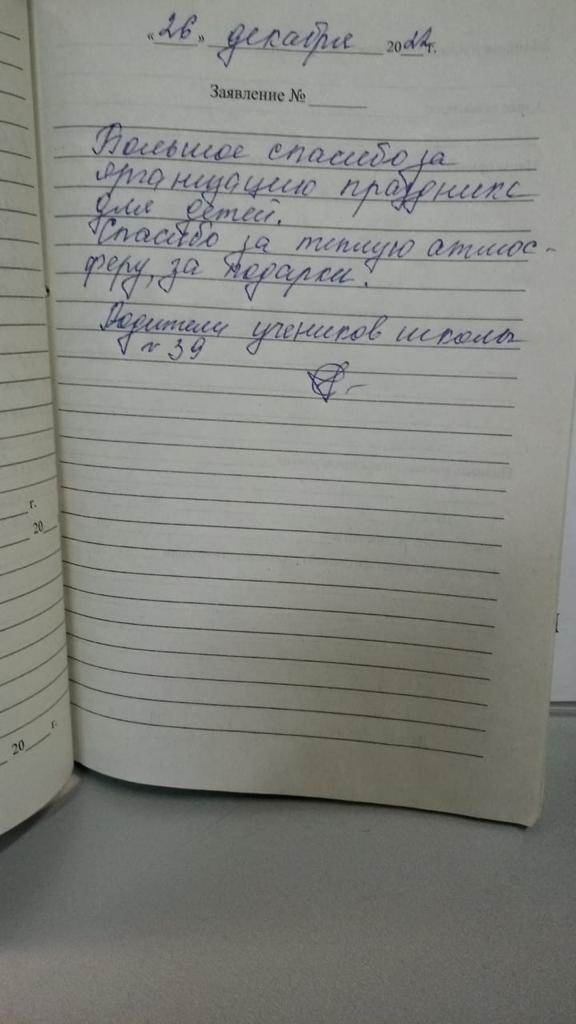 «26» декабря 2022г.
Заявление №
Большое спасибо за
организацию праздника
для детей.
Спасибо за теплую атмос-
феру, за подарки.
Родители учеников школы
№ 39
г.
20
20 г.